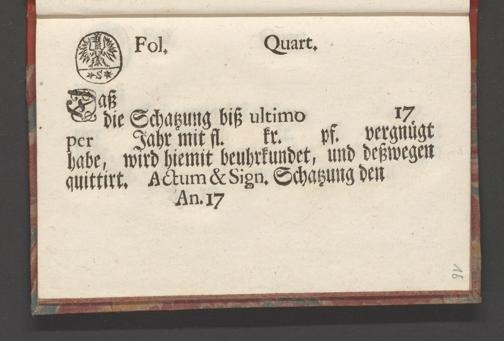 Fol. Quart.
*S*
Daß
die Schatzung biß ultimo 17
per Jahr mit fl. kr. pf. vergnügt
habe, wird hiemit beuhrkundet, und deßwegen
quittirt. Actum & Sign. Schatzung den
An. 17
16